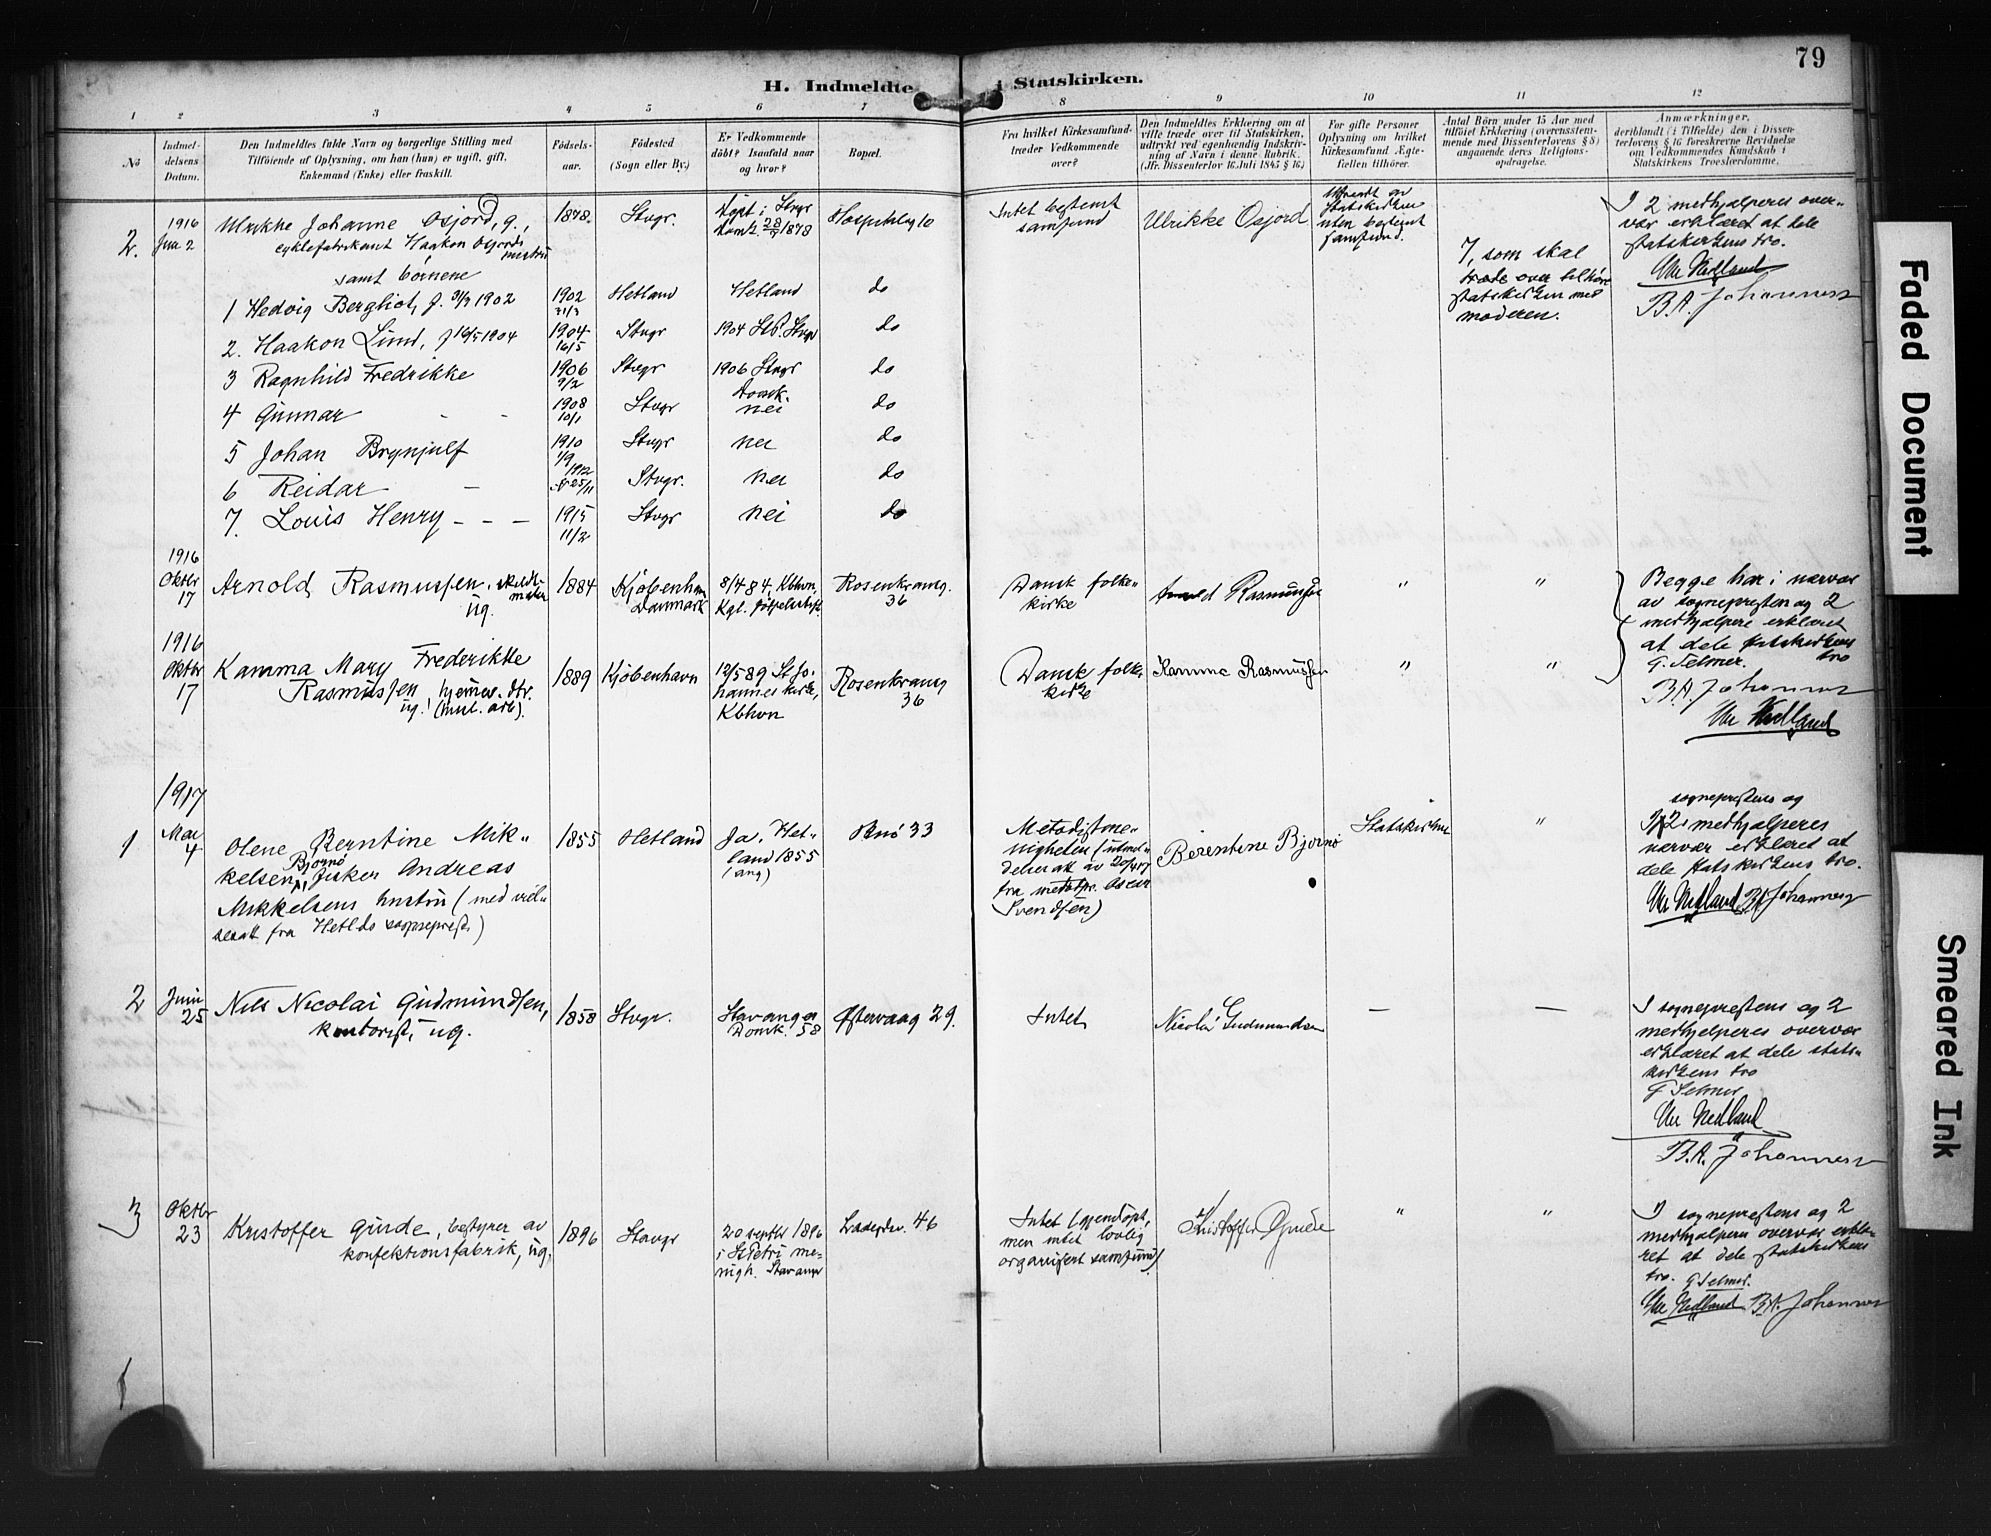 79
H. Indmeldte i Statskirken.
1 2 3 4 5 6 7 8 9 10 11 12
No
Indmel-
delsens
Datum.
Den Indmeldtes fulde Navn og borgerlige Stilling med
Tilföiende af Oplysning, om han (hun) er ugift, gift,
Enkemand (Enke) eller fraskilt.
Födsels-
aar.
Födested
(Sogn eller By.)
Er Vedkommende
döbt? Isaafald naar
og hvor?
Bopæl.
Fra hvilket Kirkesamfund
træder Vedkommende
over?
Den Indmeldtes Erklæring om at
ville træde over til Statskirken,
udtrykt ved egenhændig Indskriv-
ning af Navn i denne Rubrik.
(Jfr. Dissenterlov 16 Juli 1845 § 16.)
For gifte Personer
Oplysning om hvilket
Kirkesamfund Ægte-
fællen tilhörer.
Antal Börn under 15 Aar med
tilföiet Erklæring (overensstem-
mende med Dissenterlovens § 8)
angaaende deres Religions-
opdragelse.
Anmærkninger,
deriblandt (i Tilfælde) den i Dissen-
terlovens § 16 foreskrevne Bevidnelse
om Vedkommendes Kundskab i
Statskirkens Troeslærdomme.
2.
1916
Juni 2
Ulrikke Johanne Osjord, g.,
cyklefabrikant Haakon Osjords
hustru
samt børnene
1878
Stvgr.
Døpt i Stvgr
Domk. 28/7 1878
Hospitalsg 10
Intet bestemt
samfund
Ulrikke Osjord
Utraadt av
Statskirken
uten bestemt
samfund.
7, som skal
træde over til
statskirken med
moderen.
I 2 medhjælperes over-
vær erklæret at dele
statskirkens tro.
Nedland
B.A. Johannesen
1 Hedvig Bergliot, f. 31/3 1902
1902
31/3
Hetland
Hetland
do
2. Haakon Lund, f 16/5 1904
1904
16/5
Stvgr
1904 Stvgr
do
3 Ragnhild Fredrikke
1906
9/2
Stvgr
1906 Stvgr
Domk.
do
4 Gunnar
1908
10/1
Stvgr
nei
do
5 Johan Brynjulf
1910
1/9
Stvgr
nei
do
6 Reidar
1912
25/11
Stvgr.
nei
do
7. Louis Henry
1915
11/2
Stvgr
nei
do
1916
Oktbr
17
Arnold Rasmussen,
ug.
1884
Kjøbenhavn
Danmark
8/4 84, Kbhvn,
Kgl.
Rosenkransg.
36
Dansk folke-
kirke
Arnold Rasmussen
" "
Begge har i nærvær
av sogneprestens og 2
medhjælpere erklæret
at dele statskirkens
tro
G. Selmer.
B.A. Johannesen
Nedland
1916
Oktbr
17
Kamma Mary Frederikke
Rasmussen, hjemmev. dtr.
ug.
1889
Kjøbenhavn
12/5 89 St Jo-
hannes kirke,
Kbhvn
Rosenkransg
36
Dansk folke-
kirke
Kamma Rasmussen
" "
1917
1
Mai
4
Olene Berntine Mik-
kelsen Bjørnø, fisker Andreas
Mikkelsens hustru (med viel-
sesatt fra Hetlds sogneprest)
1855
Hetland
Ja. Het-
land 1855
(ang)
Bnø 33
Metodistme-
nigheten (utmel-
delsesatt av 20/4 17
fra metodpr. Oscar
Svendsen)
Berentine Bjørnø
Statskirken
"
sogneprestens og
I 2 medhjælperes
nærvær erklæret at
dele statskirkens tro.
Nedland B.A. Johannesen
2
Juni
25
Nils Nicolai Gudmundsen,
kontorist, ug.
1858
Stvgr.
Stavanger
Domk. 58
Østervaag 29.
Intet
Nicolai Gudmundsen
— —
I sogneprestens og 2
medhjælperes overvær
erklæret at dele stats-
kirkens tro
G Selmer
Nedland
B.A. Johannesen
3
Oktbr
23
Kristoffer Grude, bestyrer av
konfektionsfabrik, ug.
1896
Stavgr
20 septbr 1896
i St Petri me-
nigh. Stavanger
46
Intet (gjendøpt,
men intet lovlig
organisert samfund)
Kristoffer Grude
" "
I sogneprestens og 2
medhjælperes overvær erklæ-
ret at dele statskirkens
tro. G Selmer.
Nedland B.A. Johannesen
Faded Document
Smeared Ink